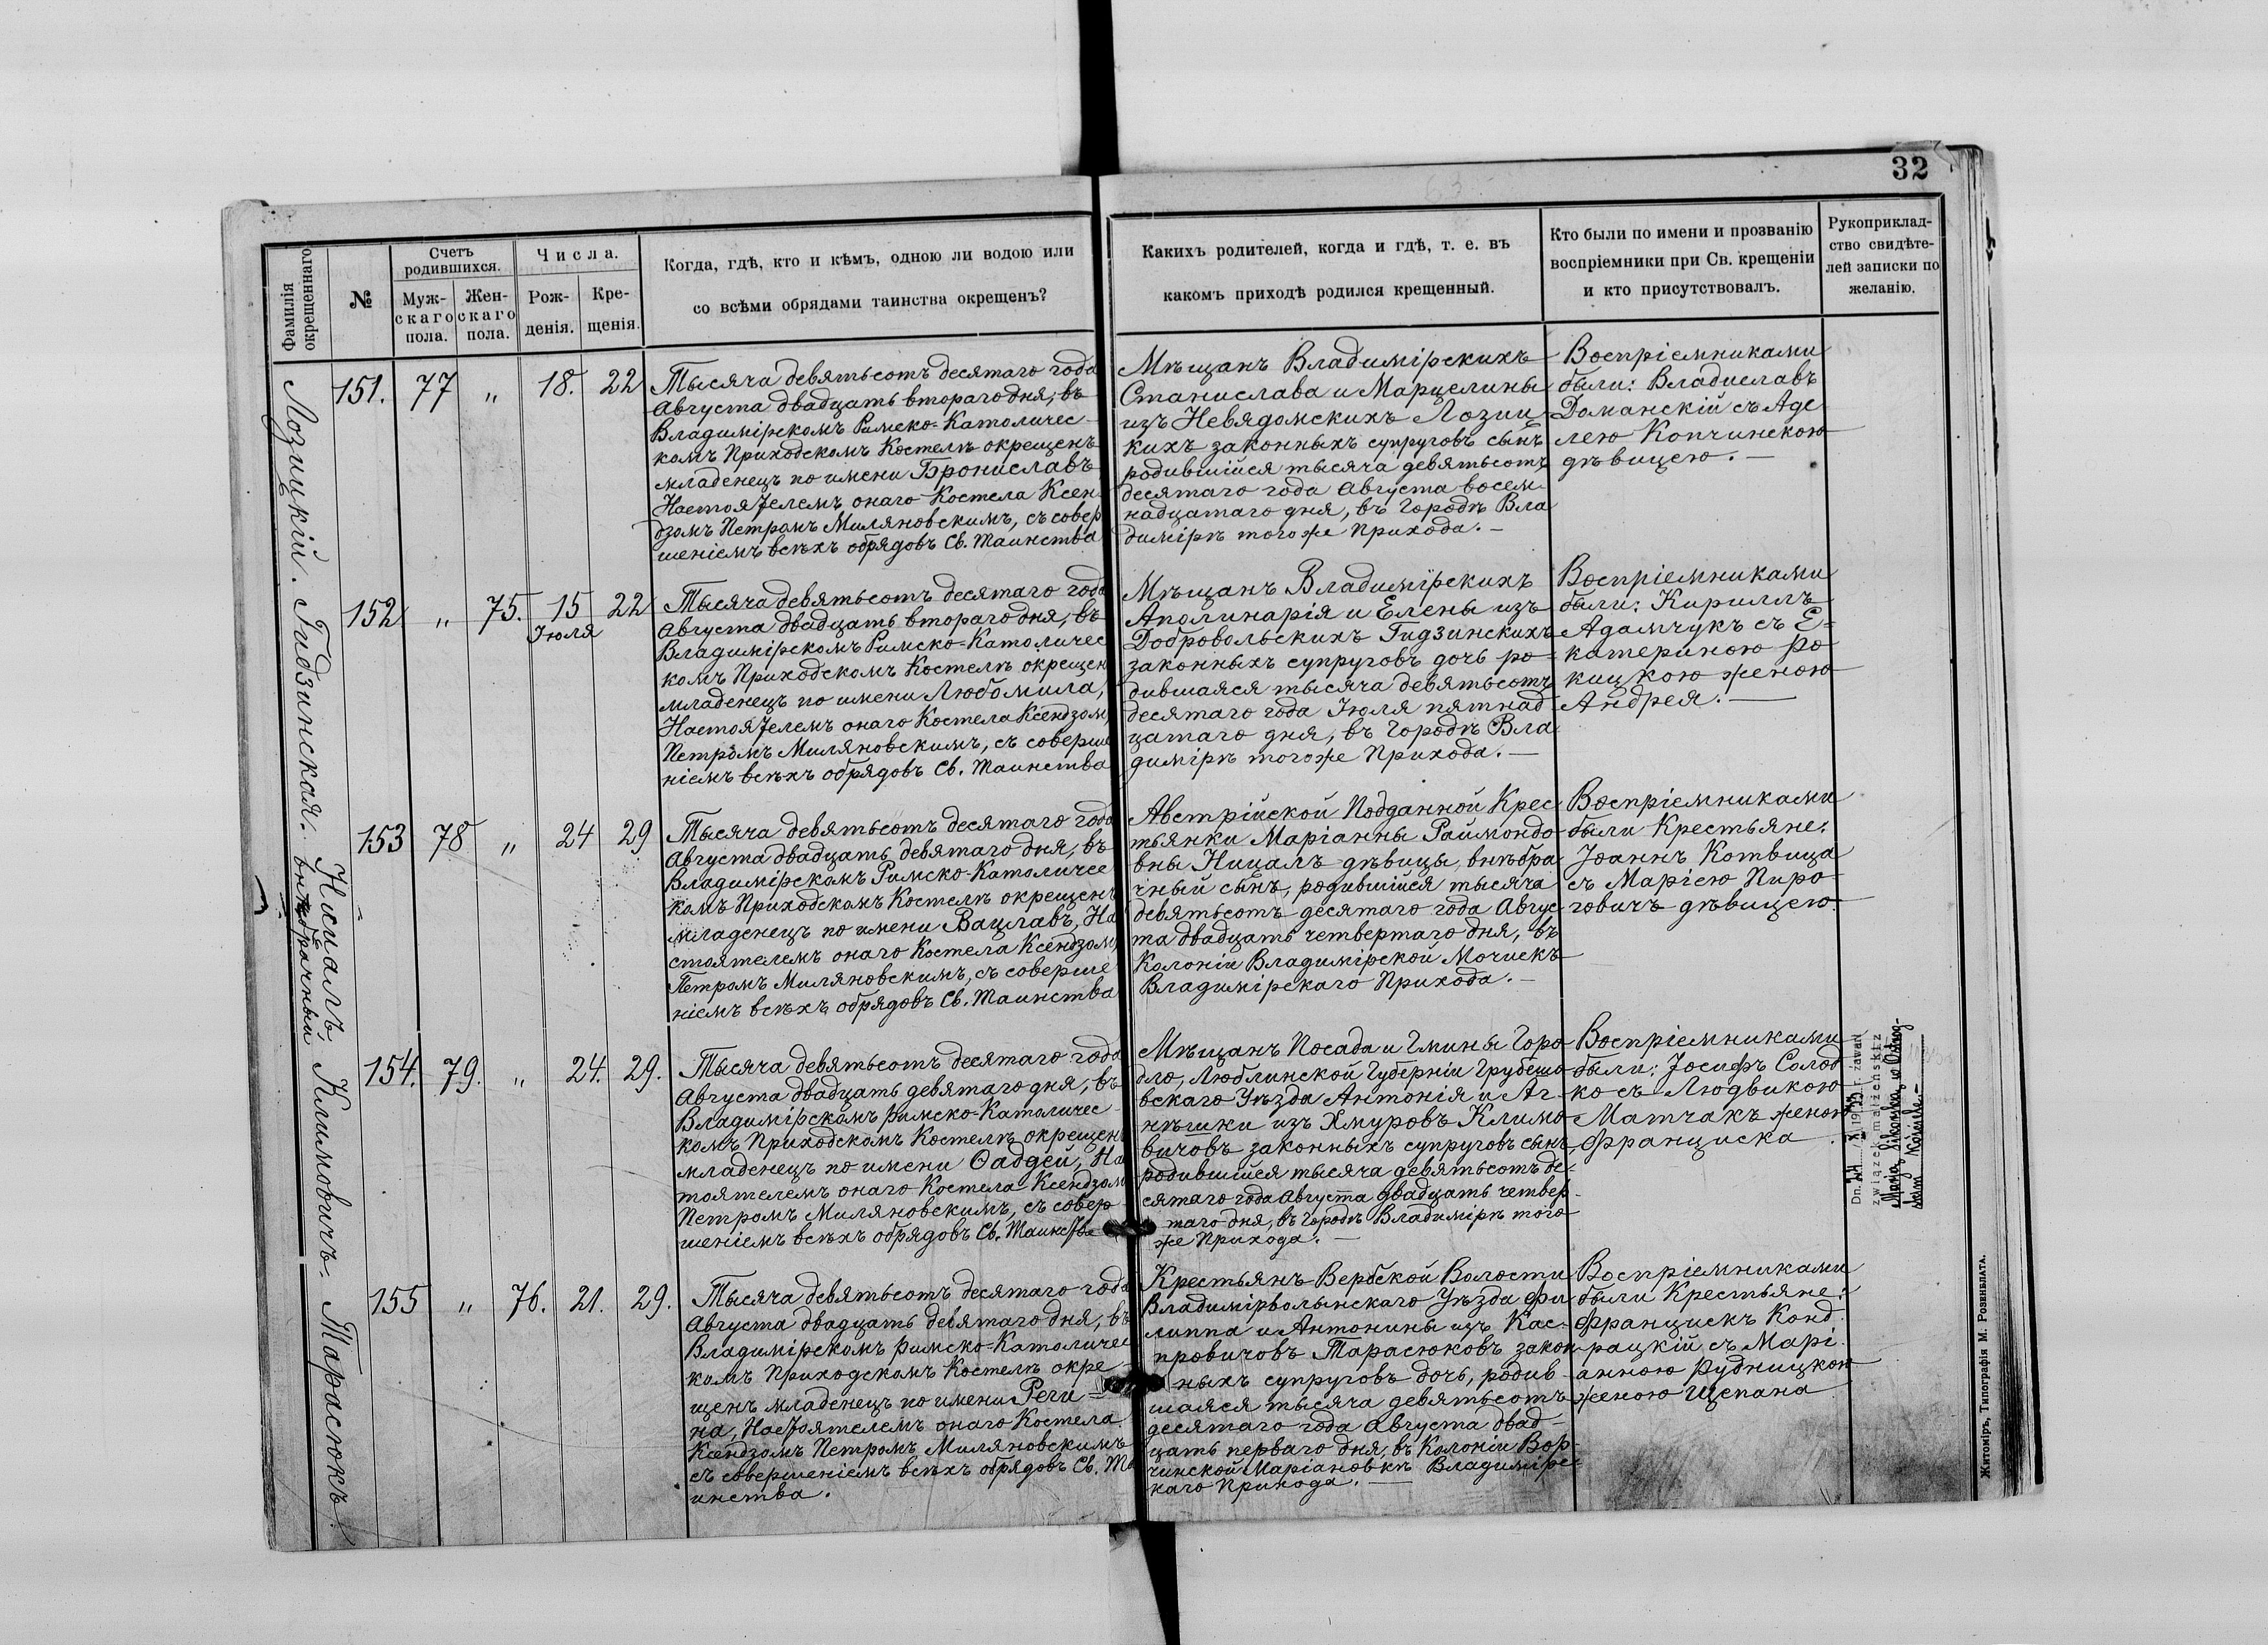 32
Фамилія
окрещеннаго
№
Счетъ
родившихся.
Муж-
скаго
пола.
Жен-
скаго
пола.
Числа.
Рож-
денія.
Кре-
щенія.
Когда, гдѣ, кто и кѣмъ, одною ли водою или
со всѣми обрядами таинства окрещенъ?
Какихъ родителей, когда и гдѣ, т. е. въ
какомъ приходѣ родился крещенный.
Кто были по имени и прозванію
воспріемники при Св. крещеніи
и кто присутствовалъ.
Рукоприклад-
ство свидѣте-
лей записки по
желанію.
Лозицкій.
151. 77 „ 18. 22
Тысяча девятьсотъ десятаго года
Августа двадцать втораго дня, въ
Владимірскомъ Римско-Католичес-
комъ Приходскомъ Костелѣ окрещенъ
младенецъ по имени Брониславъ
Настоятелемъ онаго Костела Ксен
дзомъ Петромъ Миляновскимъ, съ совер
шеніемъ всѣхъ обрядовъ Св. Таинства
Мѣщанъ Владимірскихъ
Станислава и Марцелины
изъ Невядомскихъ Лозиц
кихъ законныхъ супруговъ сынъ
родившійся тысяча девятьсотъ
десятаго года Августа восем-
надцатаго дня, въ Городѣ Вла
димірѣ того же Прихода. —
Воспріемниками
были: Владиславъ
Доманскій съ Аде
лею Копчинскою
дѣвицею. —
Гидзинская.
152 „ 75. 15 22
Іюля
Тысяча девятьсотъ десятаго года
Августа двадцать втораго дня, въ
Владимірскомъ Римско-Католичес
комъ Приходскомъ Костелѣ окрещен
младенецъ по имени Любомила,
Настоятелемъ онаго Костела Ксендзом,
Петромъ Миляновскимъ, съ соверше
ніемъ всѣхъ обрядовъ Св. Таинства
Мѣщанъ Владимірскихъ
Аполинарія и Елены изъ
Добровольскихъ Гидзинскихъ
законныхъ супруговъ дочь ро-
дившаяся тысяча девятьсотъ
десятаго года Іюля пятнад
цатаго дня, въ Городѣ Вла
димірѣ того же Прихода. —
Воспріемниками
были: Кириллъ
Адамчукъ съ Е=
катериною Ро
кицкою женою
Андрея. —
Ницалъ.
внѣбрачный
153 78 „ 24 29
Тысяча девятьсотъ десятаго года
Августа двадцать девятаго дня, въ
Владимірскомъ Римско-Католичес
комъ Приходскомъ Костелѣ окрещенъ
младенецъ по имени Вацлавъ, На
стоятелемъ онаго Костела Ксендзом,
Петромъ Миляновскимъ, съ соверше
ніемъ всѣхъ обрядовъ Св. Таинства
Австрійской Подданной Крес
тьянки Маріанны Раймондо
вны Ницалъ дѣвицы, внѣбра
чный сынъ, родившійся тысяча
девятьсотъ десятаго года Авгус
та двадцать четвертаго дня, въ
Колоніи Владимірской Мочискъ
Владимірскаго Прихода. —
Воспріемниками
были Крестьяне:
Іоаннъ Котвица
съ Маріею Пиро-
говичъ дѣвицею.
Климовичъ.
154. 79. „ 24. 29.
Тысяча девятьсотъ десятаго года
Августа двадцать девятаго дня, въ
Владимірскомъ Римско-Католичес-
комъ Приходскомъ Костелѣ окрещен
младенецъ по имени Ѳаддей, На
тоятелемъ онаго Костела Ксендзом
Петромъ Миляновскимъ, съ совер
шеніемъ всѣхъ обрядовъ Св. Таинства
Мѣщанъ Посада и Гмины Горо
дло, Люблинской Губерніи Грубешо
вскаго Уѣзда Антонія и Аг-
нѣшки изъ Хмуровъ Климо
вичовъ законныхъ супруговъ сынъ,
родившійся тысяча девятьсотъ де-
сятаго года Августа двадцать четвер-
таго дня, въ Городѣ Владимірѣ того
же Прихода. —
Воспріемниками
были: Іосифъ Солод
ко съ Людвикою
Матчакъ женою
Франциска.
zawarł
związek małżeński z
Тарасюкъ.
155 „ 76. 21. 29.
Тысяча девятьсотъ десятаго года
Августа двадцать девятаго дня, въ
Владимірскомъ Римско-Католичес
комъ Приходскомъ Костелѣ окре-
щенъ младенецъ по имени Реги=
на, Настоятелемъ онаго Костела
Ксендзомъ Петромъ Миляновскимъ
съ совершеніемъ всѣхъ обрядовъ Св. Та
инства.
Крестьянъ Вербской Волости
Владимірволынскаго Уѣзда Фи
липпа и Антонины изъ Кас-
провичовъ Тарасюковъ закон
ныхъ супруговъ дочь, родив-
шаяся тысяча девятьсотъ
десятаго года Августа двад-
цать перваго дня, въ Колоніи Вор-
чинской Маріановкѣ Владимірс-
каго Прихода. —
Воспріемниками
были Крестьяне:
Францискъ Конд
рацкій съ Марі-
анною Рудницкою
женою Щепана
Житоміръ, Типографія М. Розенблата.